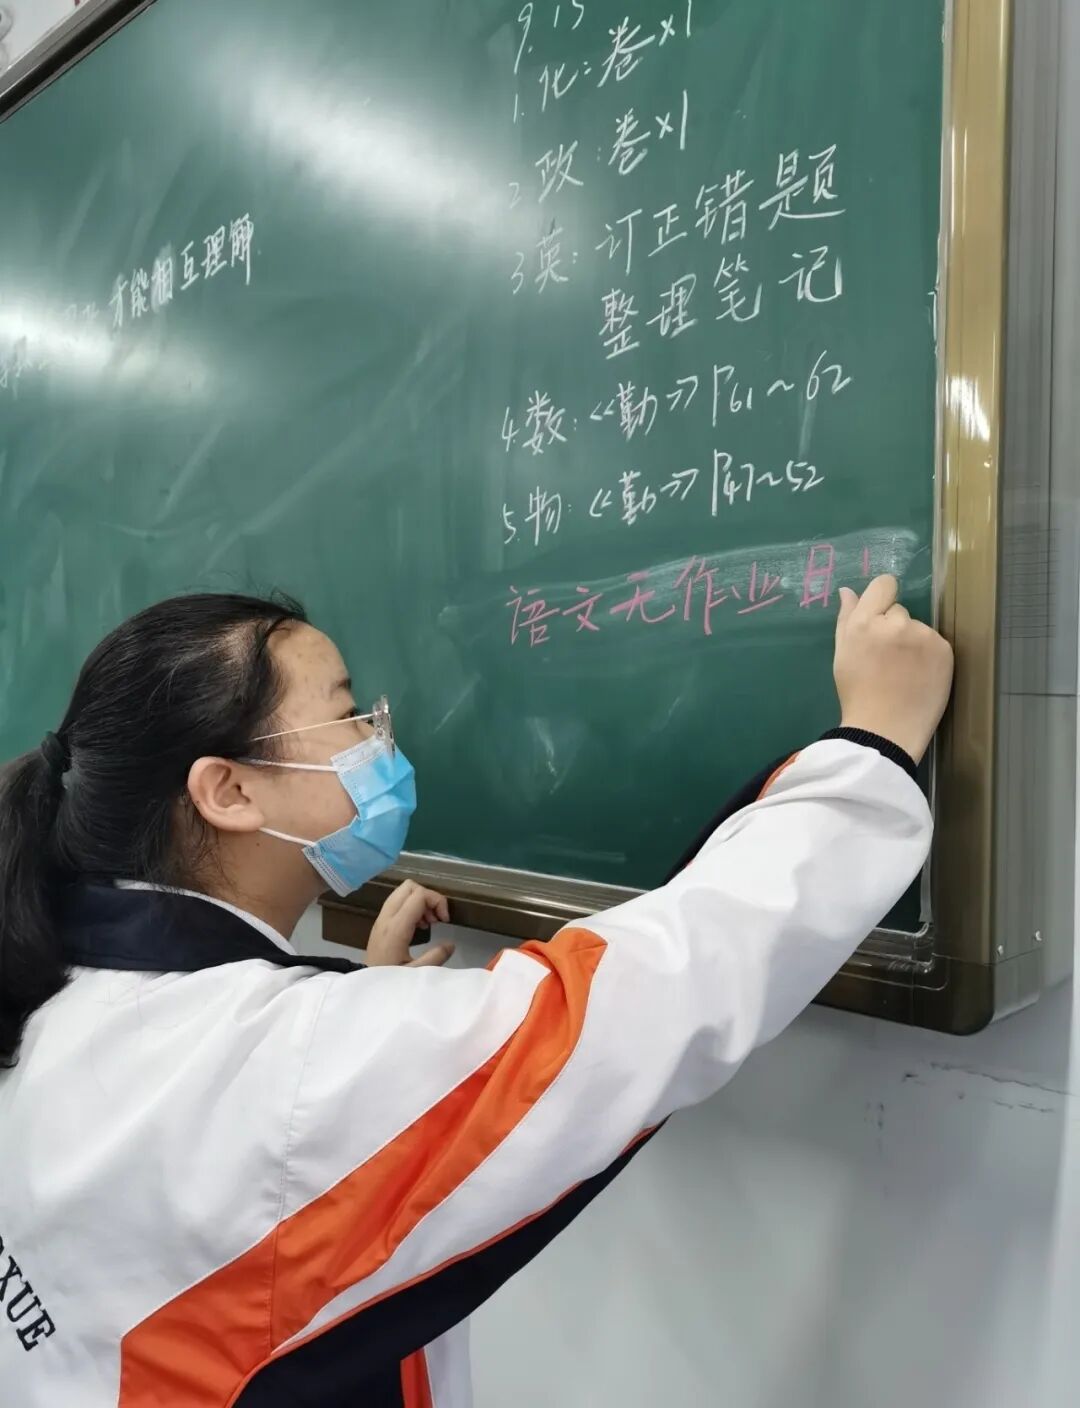 才能相互理解
9.15
1.化:卷×1
2 政:卷×1
3英:订正错题
整理笔记
4.数:《勤》P61~62
5.物:《勤》P47~52
语文无作业日!
XUE